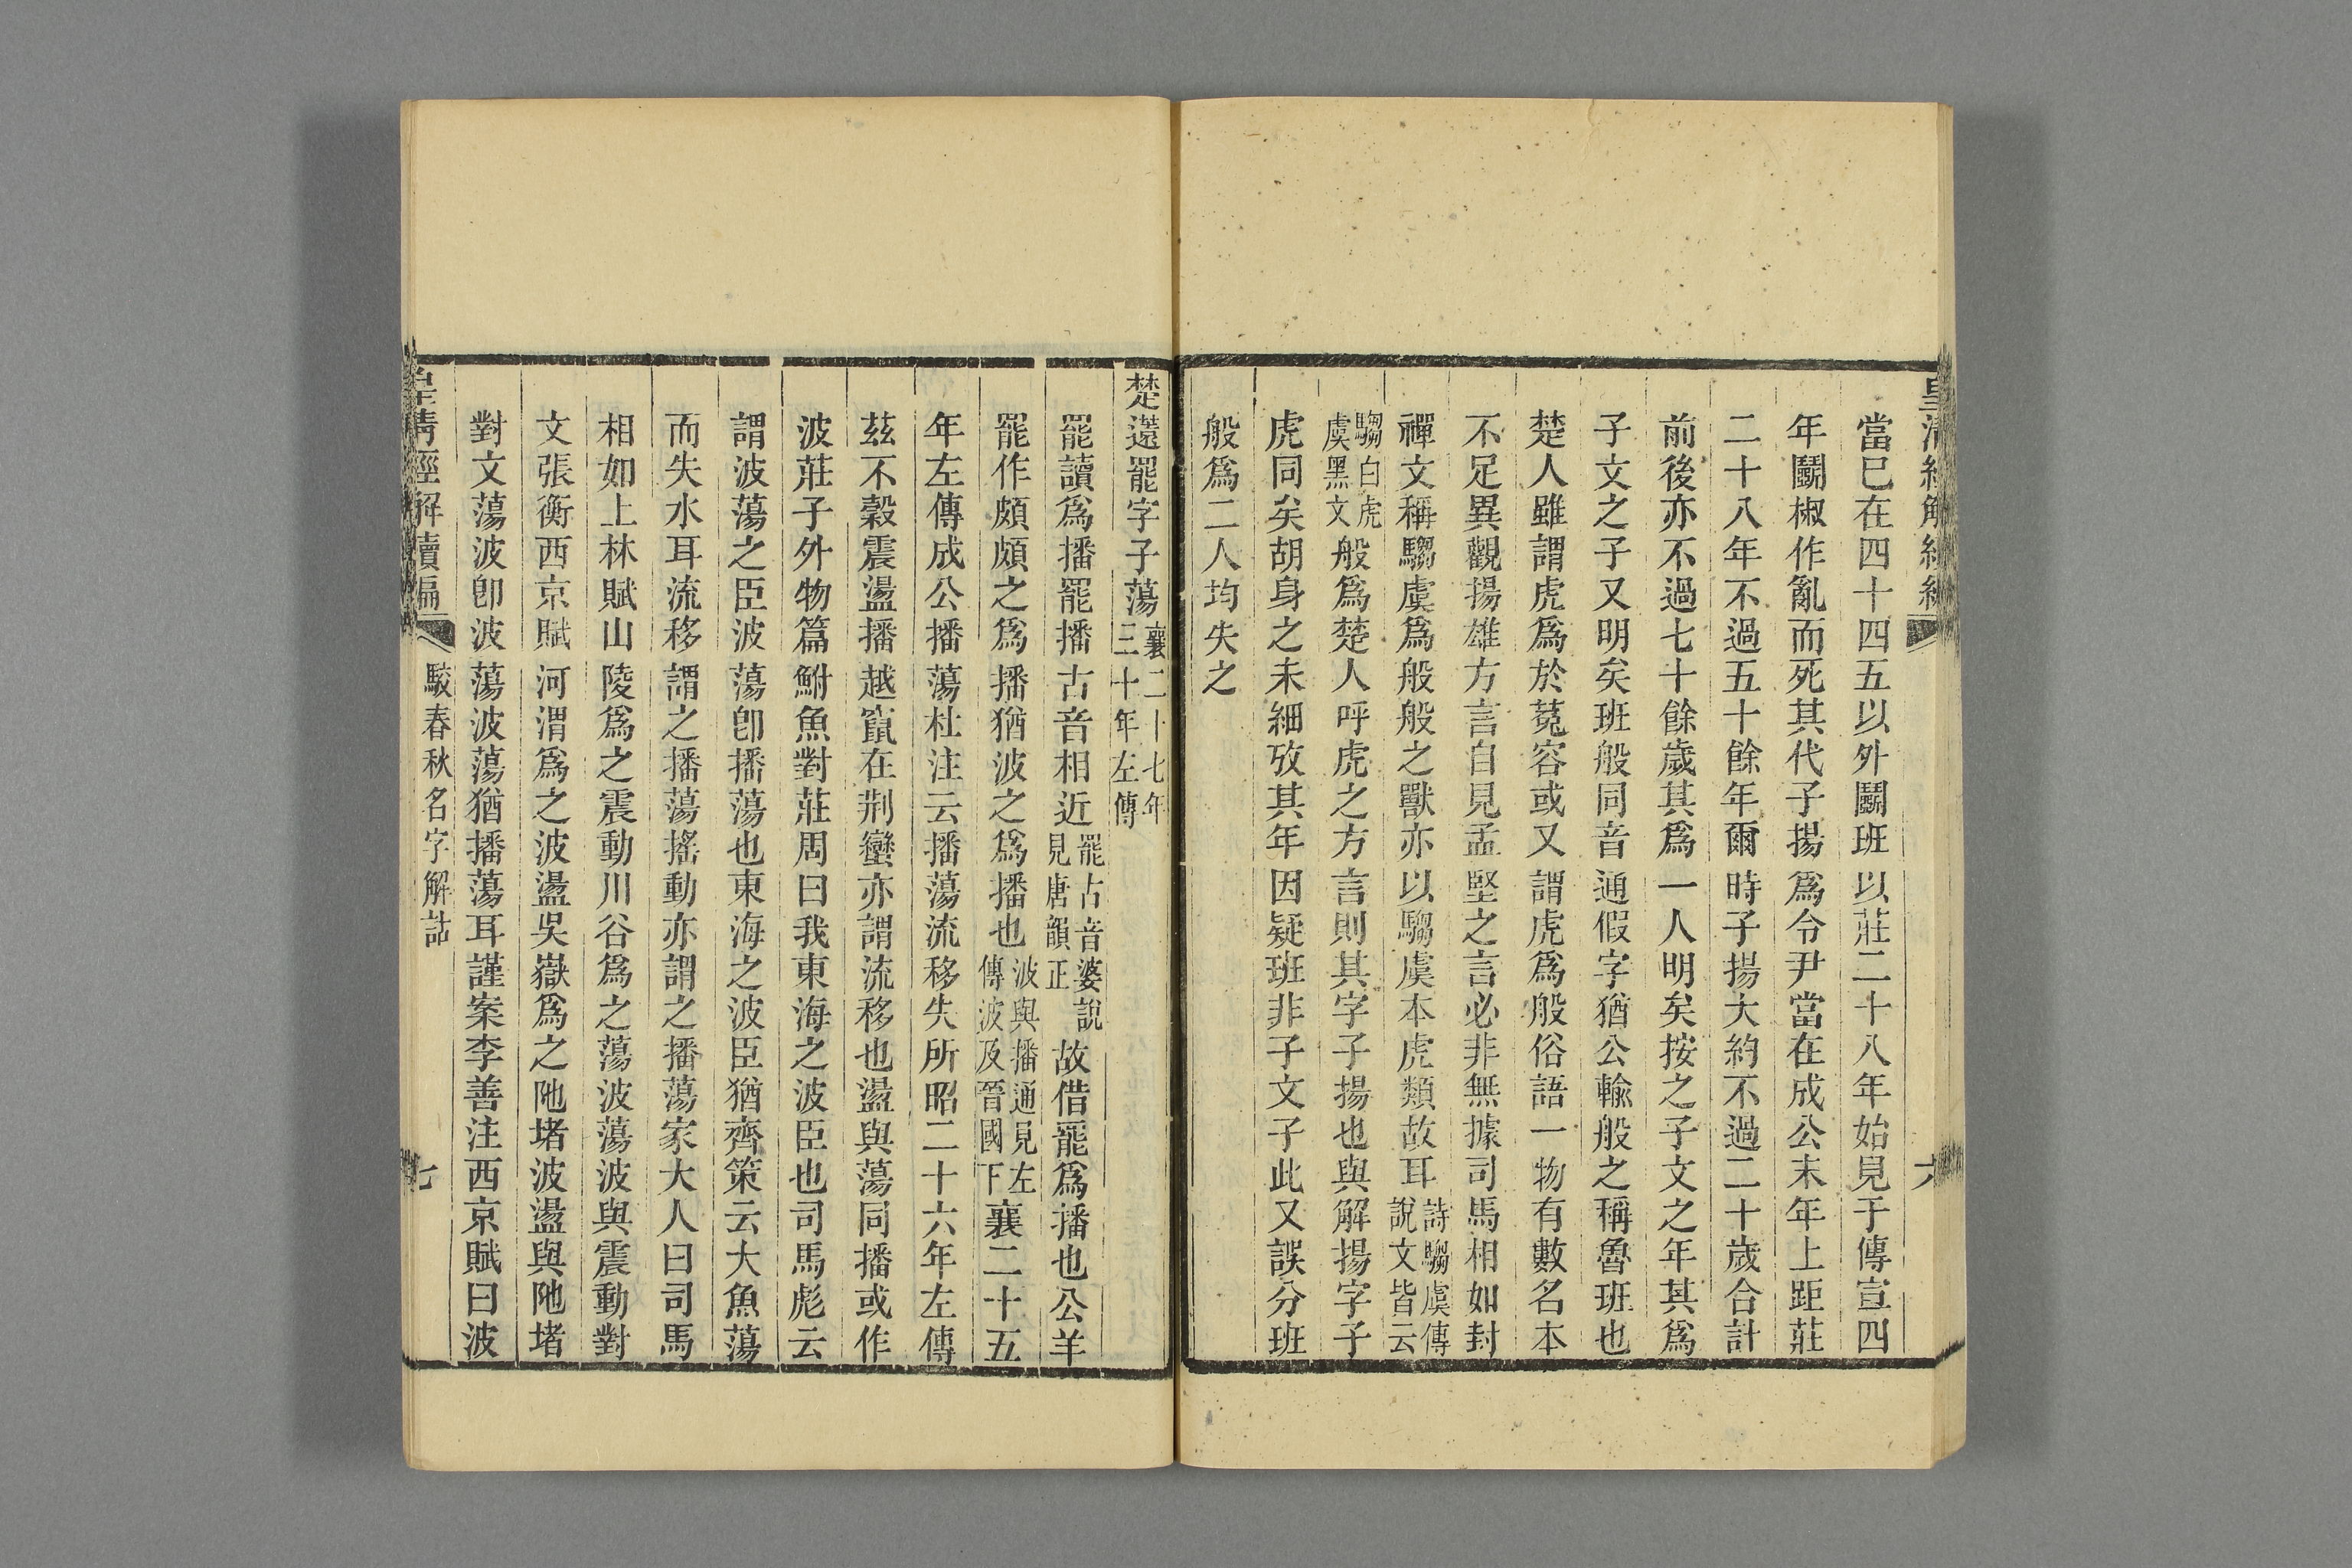 當已在四十四五以外鬭班以莊二十八年始見于傳宣四
年鬭椒作亂而死其代子揚爲令尹當在成公末年上距莊
二十八年不過五十餘年爾時子揚大約不過二十歲合計
前後亦不過七十餘歲其爲一人明矣按之子文之年其爲
子文之子又明矣班般同音通假字猶公輸般之稱魯班也
楚人雖謂虎爲於菟容或又謂虎爲般俗語一物有數名本
不足異觀揚雄方言自見孟堅之言必非無據司馬相如封
禪文稱騶虞爲般般之獸亦以騶虞本虎類故耳詩騶虞傳說文皆云
騶白虎虞黑文般爲楚人呼虎之方言則其字子揚也與解揚字子
虎同矣胡身之未細攷其年因疑班非子文子此又誤分班
般爲二人均失之
六
楚薳罷字子蕩襄二十七年三十年左傳
罷讀爲播罷播古音相近罷古音婆說見唐韻正故借罷爲播也公羊
罷作頗頗之爲播猶波之爲播也波與播通見左傳波及晉國下襄二十五
年左傳成公播蕩杜注云播蕩流移失所昭二十六年左傳
茲不穀震盪播越竄在荆蠻亦謂流移也盪與蕩同播或作
波莊子外物篇鮒魚對莊周曰我東海之波臣也司馬彪云
謂波蕩之臣波蕩卽播蕩也東海之波臣猶齊策云大魚蕩
而失水耳流移謂之播蕩搖動亦謂之播蕩家大人曰司馬
相如上林賦山陵爲之震動川谷爲之蕩波蕩波與震動對
文張衡西京賦河渭爲之波盪吳嶽爲之陁堵波盪與陁堵
對文蕩波卽波蕩波蕩猶播蕩耳謹案李善注西京賦曰波
皇清經解續編 駁春秋名字解詁 七